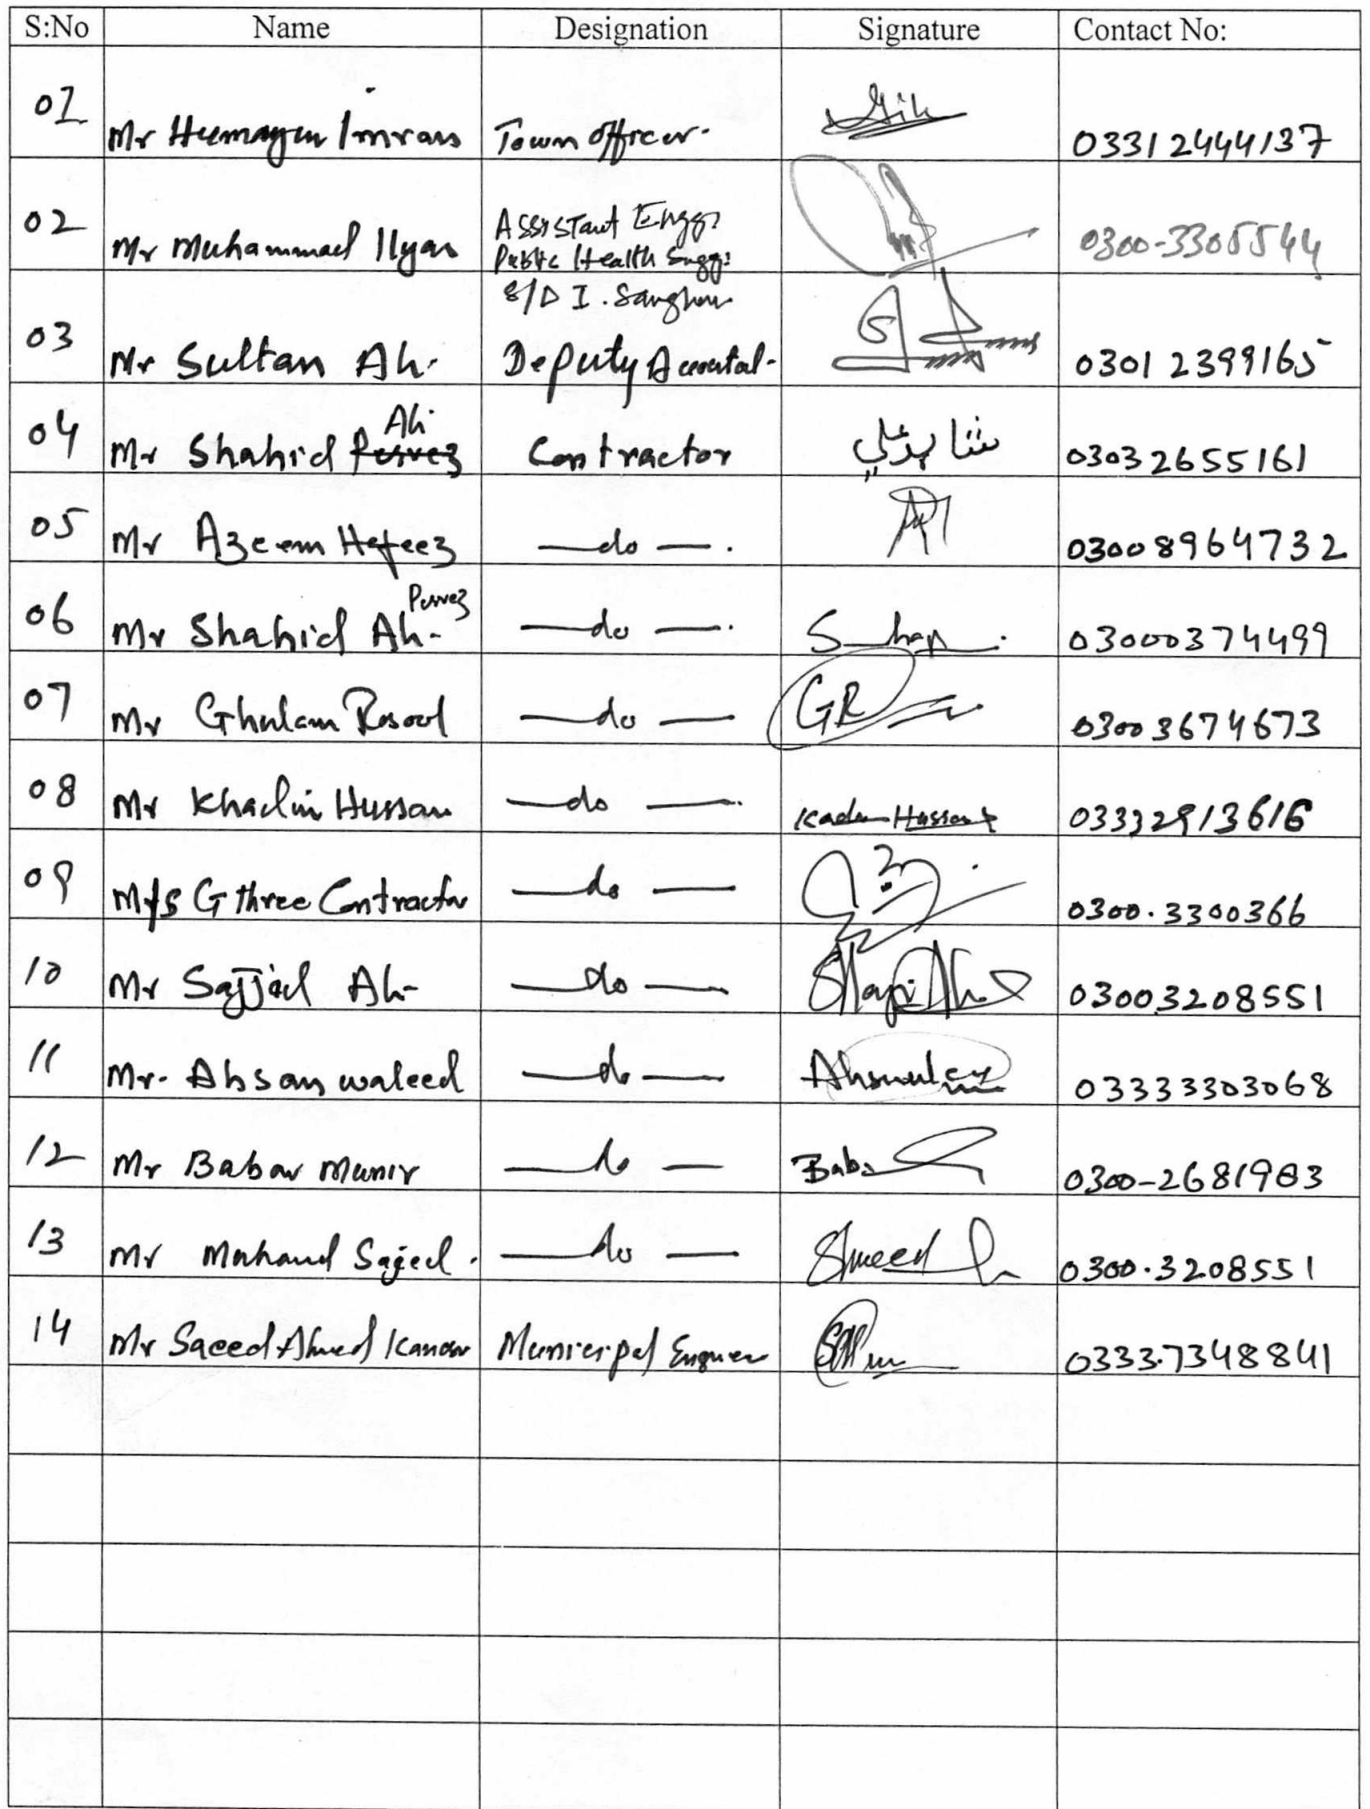 S:No Name Designation Signature Contact No:
01 Mr Humayun Imran Town officer. 03312444137
02 Mr Muhammad Ilyas Assistant Engg: 0300-3305544
Public Health Engg:
S/D I. Sanghar
03 Mr Sultan Ali. Deputy Accountat. 03012399165
04 Mr Shahid Pervez Ali Contractor شاہد علي 03032655161
05 Mr Azeem Hafeez —do—. 03008964732
06 Mr Shahid Ali Pervez —do—. 03000374499
07 Mr Ghulam Rasool —do— GR 03003674673
08 Mr Khadim Hussan —do—. Kadm Hussan 03332913616
09 M/s G three Contractor —do— 0300.3300366
10 Mr Sajjad Ali —do— 03003208551
11 Mr. Ahsan waleed —do— 03333303068
12 Mr Babar Munir —do— Baba 0300-2681983
13 Mr Mahamd Sajed. —do— 0300.3208551
14 Mr Saeed Ahmed Municipal Engineer 0333.7348841